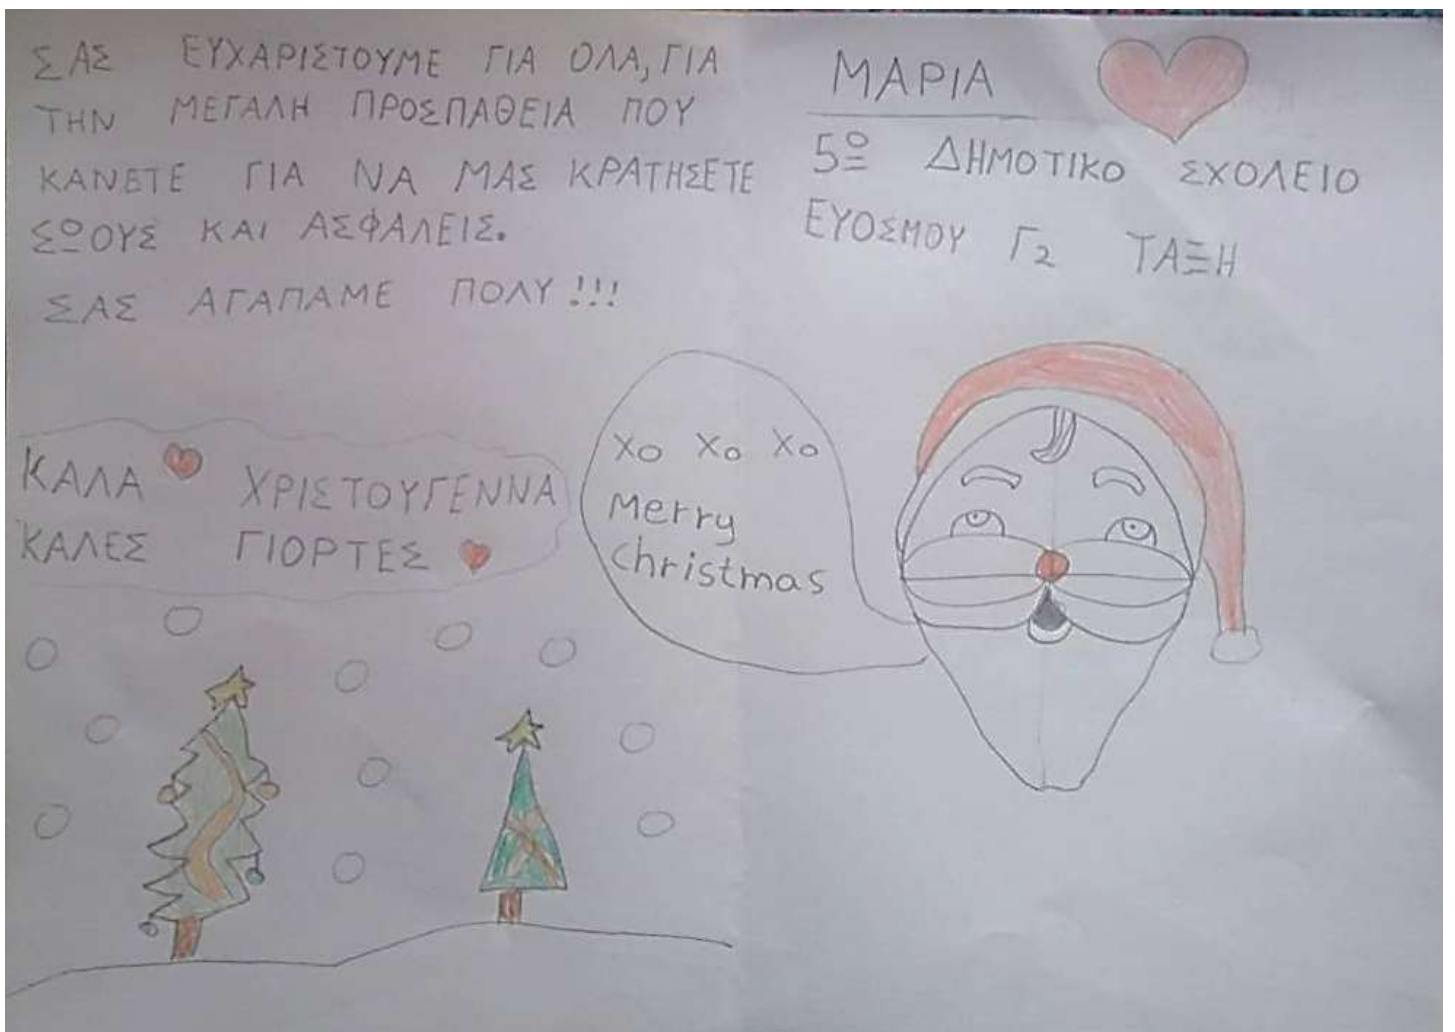 ΣΑΣ ΕΥΧΑΡΙΣΤΟΥΜΕ ΓΙΑ ΟΛΑ, ΓΙΑ
ΤΗΝ ΜΕΓΑΛΗ ΠΡΟΣΠΑΘΕΙΑ ΠΟΥ
ΚΑΝΕΤΕ ΓΙΑ ΝΑ ΜΑΣ ΚΡΑΤΗΣΕΤΕ
ΣΩΟΥΣ ΚΑΙ ΑΣΦΑΛΕΙΣ.
ΣΑΣ ΑΓΑΠΑΜΕ ΠΟΛΥ!!!
ΜΑΡΙΑ
5ο ΔΗΜΟΤΙΚΟ ΣΧΟΛΕΙΟ
ΕΥΟΣΜΟΥ Γ2 ΤΑΞΗ
ΚΑΛΑ ΧΡΙΣΤΟΥΓΕΝΝΑ
ΚΑΛΕΣ ΓΙΟΡΤΕΣ
Χο Χο Χο
Merry
christmas